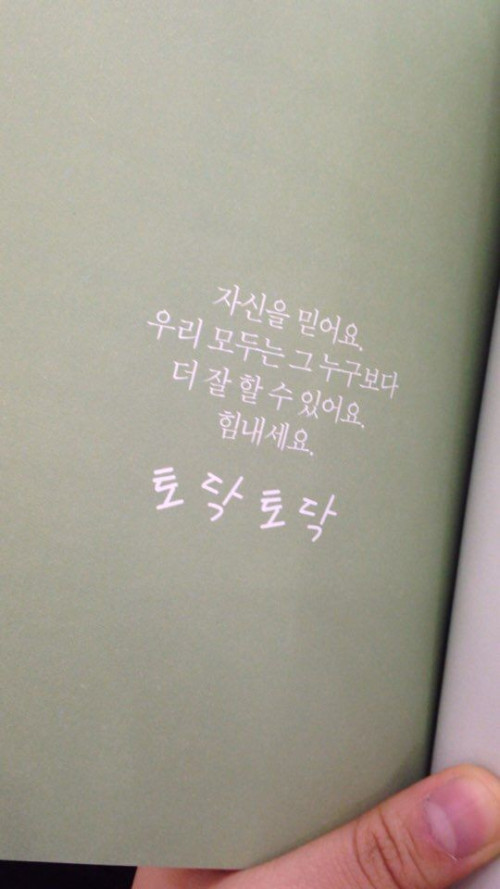 자신을 믿어요.
우리 모두는 그 누구보다
더 잘 할 수 있어요.
힘내세요.
토닥토닥